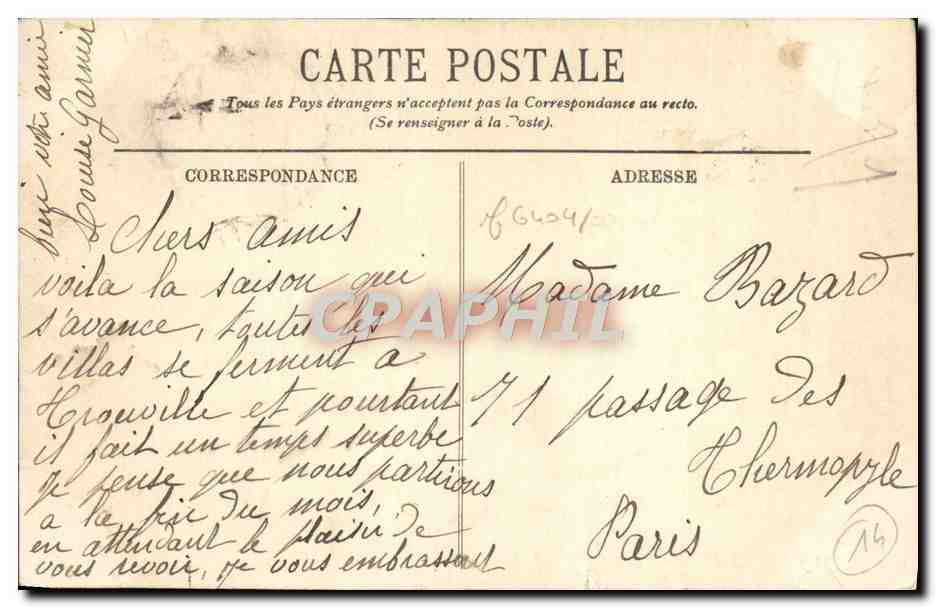 CARTE POSTALE
Tous les Pays étrangers n'acceptent pas la Correspondance au recto.
(Se renseigner à la Poste).
CORRESPONDANCE
Chers amis
voila la saison qui
s'avance, toutes les
villas se ferment a
Trouville et pourtant
il fait un temps superbe
je pense que nous partirons
a la fin du mois,
en attendant le plaisir de
vous revoir, je vous embrassant
bien votre amie
Louise Garnier
ADRESSE
Madame Bazard
71 passage des
Thermopyle
Paris
14
CPAPHIL